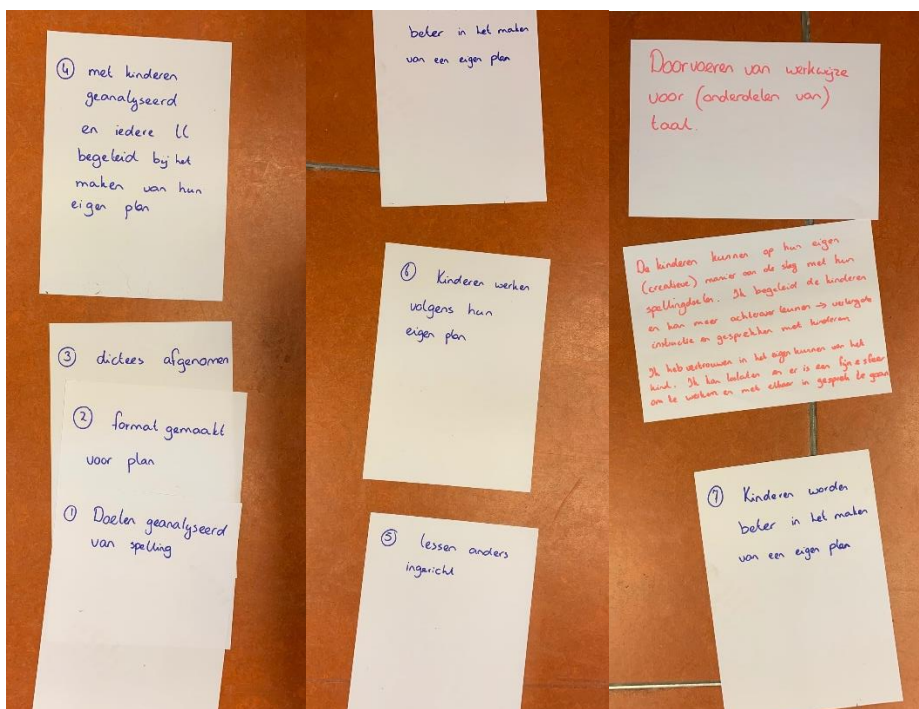 ④ met kinderen
geanalyseerd
en iedere ll
begeleid bij het
maken van hun
eigen plan
③ dictees afgenomen
② format gemaakt
voor plan
① Doelen geanalyseerd
van spelling
beter in het maken
van een eigen plan
⑥ Kinderen werken
volgens hun
eigen plan
⑤ lessen anders
ingericht
Doorvoeren van werkwijze
voor (onderdelen van)
taal.
De kinderen kunnen op hun eigen
(creatieve) manier aan de slag met hun
spellingdoelen. Ik begeleid de kinderen
en kan meer achterover leunen → verlengde
instructie en gesprekken met kinderen
Ik heb vertrouwen in het eigen kunnen van het
kind. Ik kan loslaten en er is een fijne sfeer
om te werken en met elkaar in gesprek te gaan
⑦ Kinderen worden
beter in het maken
van een eigen plan